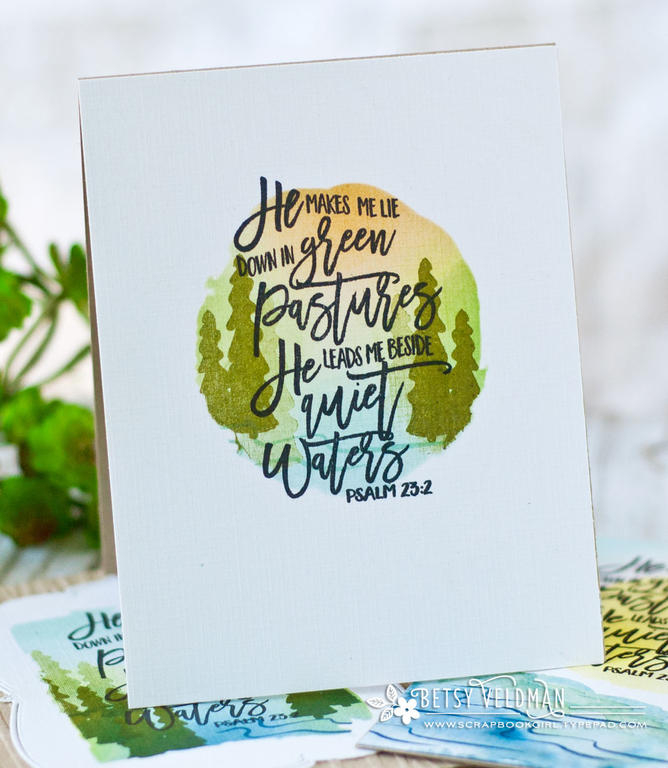 He MAKES ME LIE
DOWN IN green
pastures
He LEADS ME BESIDE
quiet
Waters
PSALM 23:2
He
DOWN IN
Waters
PSALM 23:2
He
Waters
BETSY VELDMAN
WWW.SCRAPBOOKGIRL.TYPEPAD.COM